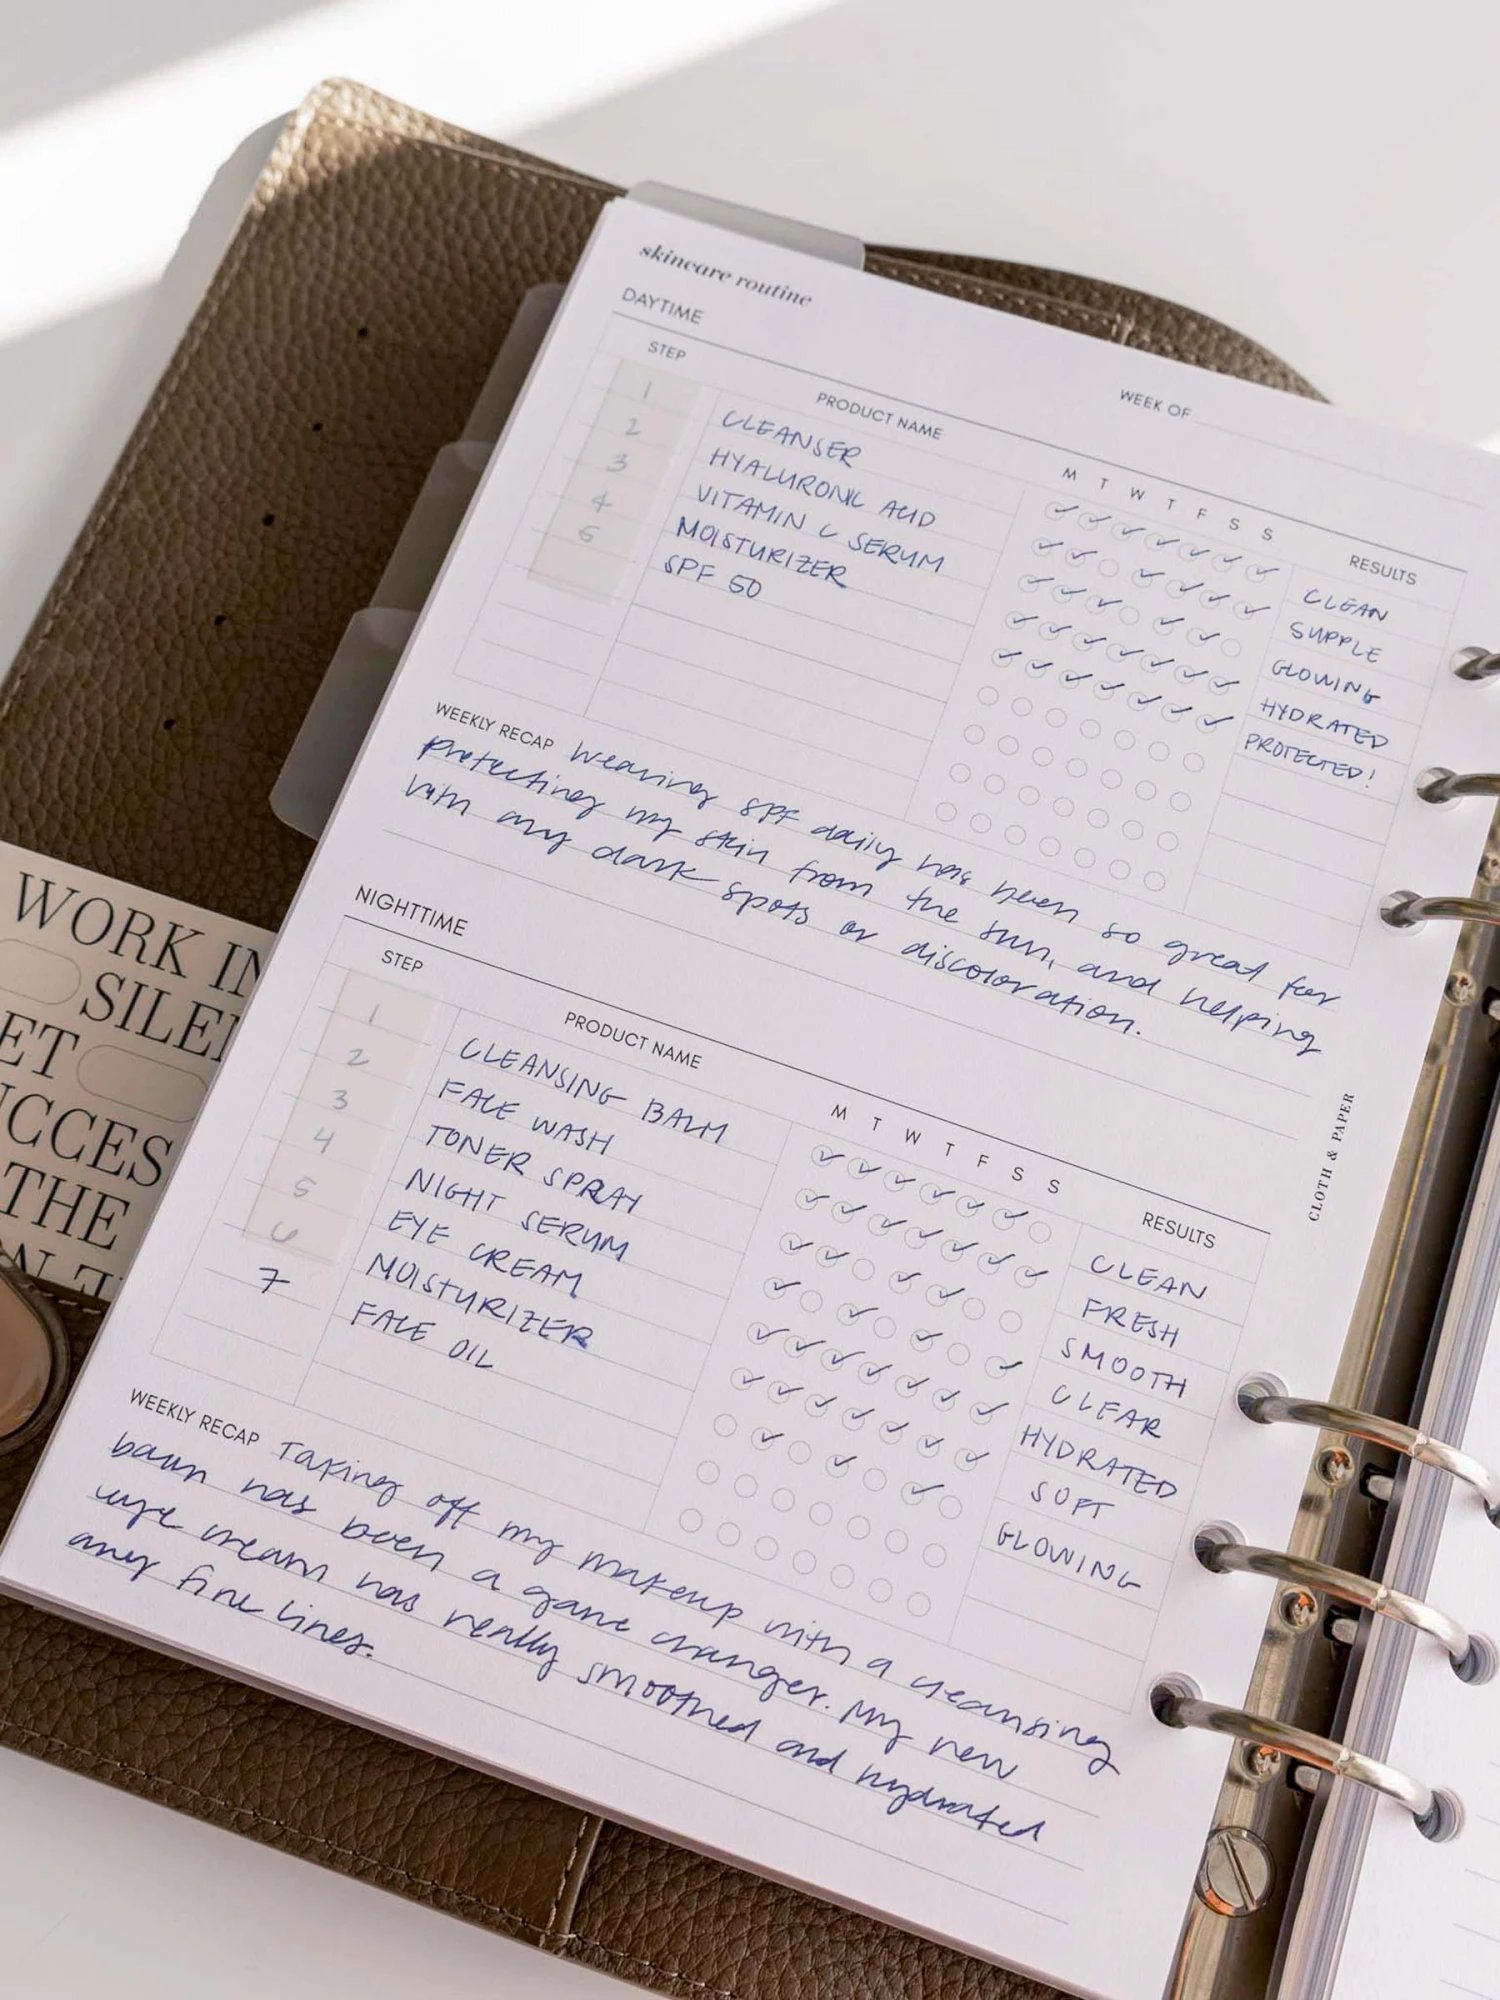 skincare routine
DAYTIME
WEEK OF
STEP PRODUCT NAME M T W T F S S RESULTS
1 CLEANSER CLEAN
2 HYALURONIC ACID SUPPLE
3 VITAMIN C SERUM GLOWING
4 MOISTURIZER HYDRATED
5 SPF 50 PROTECTED!
WEEKLY RECAP Wearing SPF daily has been so great for
protecting my skin from the sun, and helping
with any dark spots or discoloration.
NIGHTTIME
STEP PRODUCT NAME M T W T F S S RESULTS
1 CLEANSING BALM CLEAN
2 FACE WASH FRESH
3 TONER SPRAY SMOOTH
4 NIGHT SERUM CLEAR
5 EYE CREAM HYDRATED
6 MOISTURIZER SOFT
7 FACE OIL GLOWING
WEEKLY RECAP Taking off my makeup with a cleansing
balm has been a game changer. My new
eye cream has really smoothed and hydrated
any fine lines.
CLOTH & PAPER
WORK IN
SILEN
ET
UCCES
THE